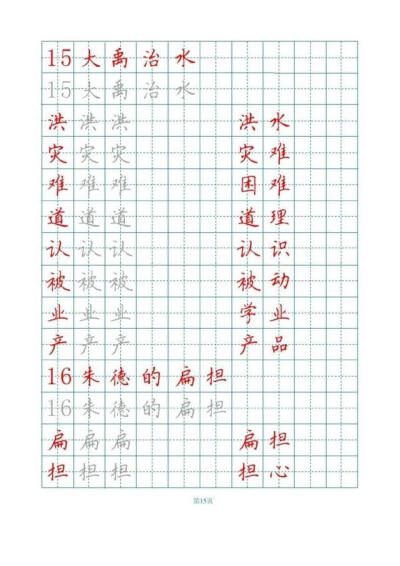 15大禹治水
15大禹治水
洪洪洪 洪水
灾灾灾 灾难
难难难 困难
道道道 道理
认认认 认识
被被被 被动
业业业 学业
产产产 产品
16朱德的扁担
16朱德的扁担
扁扁扁 扁担
担担担 担心
第15页